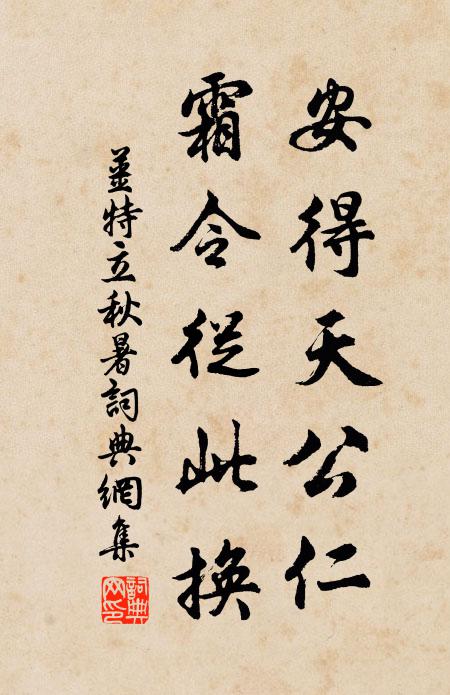 安得天公仁
霜令從此換
姜特立秋暑詞典網集
詞典網印